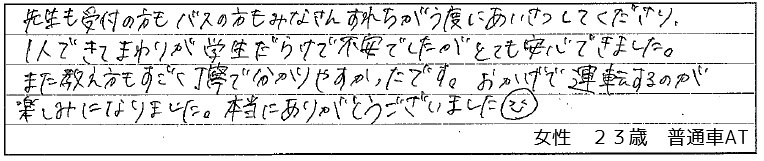 先生も受付の方もバスの方もみなさんすれちがう度にあいさつしてくださり、
1人できてまわりが学生だらけで不安でしたがとても安心できました。
また教え方もすごく丁寧で分かりやすかったです。おかげで運転するのが
楽しみになりました。本当にありがとうございました
女性 23歳 普通車AT